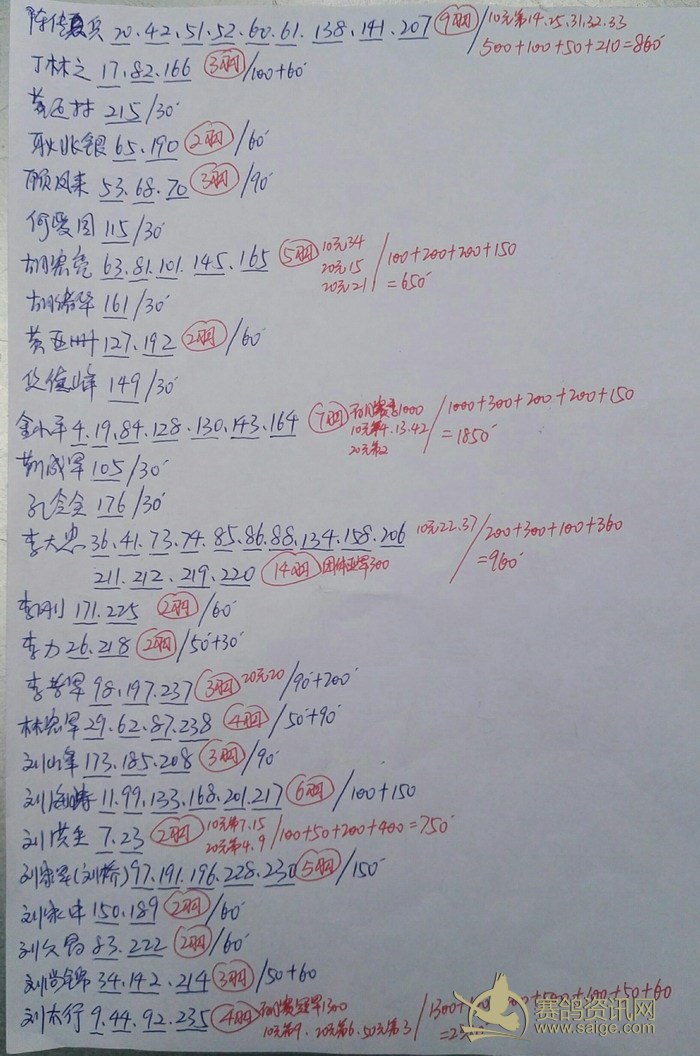 20.42.51.52.60.61.138.141.207 9羽 /10元第14.25.31.32.33
500+100+50+210=860
丁林之 17.82.166 3羽/100+60
215/30
耿兆银 65.190 2羽/60
顾凤来 53.68.70 3羽/90
何爱国 115/30
63.81.101.145.165 5羽 10元34 /100+200+200+150
20元15
20元21 =650
胡诸华 161/30
黄亚洲 127.192 2羽/60
149/30
金小平 4.19.84.128.130.143.164 7羽 1000 /1000+300+200+200+150
10元第4.13.42 =1850
20元第2
靳成军 105/30
孔令全 176/30
李大忠 36.41.73.74.85.86.88.134.158.206 10元22.37/200+300+100+360
211.212.219.220 14羽 团体亚军300 =960
李刚 171.225 2羽/60
李力 26.218 2羽/50+30
98.197.237 3羽 20元20/90+200
林宏军 29.62.87.238 4羽/50+90
刘山峰 173.185.208 3羽/90
刘海涛 11.99.133.168.201.217 6羽/100+150
刘洪生 7.23 2羽 10元第7.15 /100+50+200+400=750
20元第4.9
刘家军(刘桥)97.191.196.228.230 5羽/150
刘家中 150.189 2羽/60
刘久昌 83.222 2羽/60
刘尚锦 34.142.214 3羽/50+60
刘太行 9.44.92.235 4羽 冠军1300 /1300+
10元第9.20元第6.50元第3
+300+50+60
赛鸽资讯网
www.saige.com